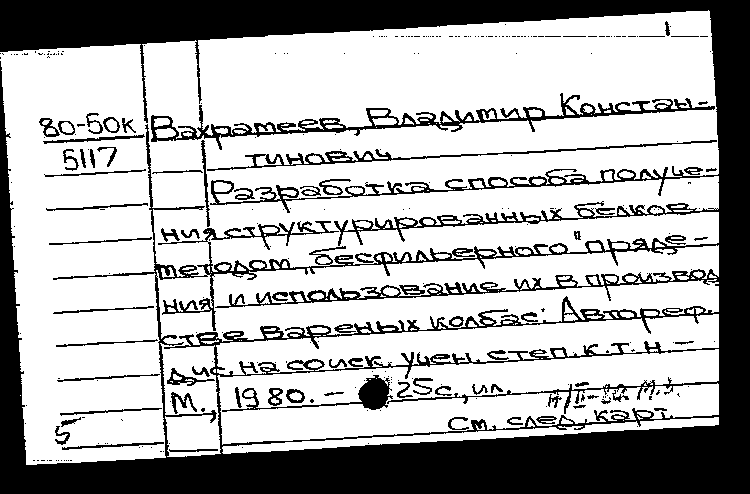 1
80-50к Вахрамеев, Владимир Констан-
5117 тинович.
Разработка способа получе-
ния структурированных белков
методом "бесфильерного" пряде-
ния и использование их в производ
стве вареных колбас: Автореф.
дис. на соиск. учен. степ. к.т.н. –
М., 1980. – 25с., ил.
5 См. след. карт.